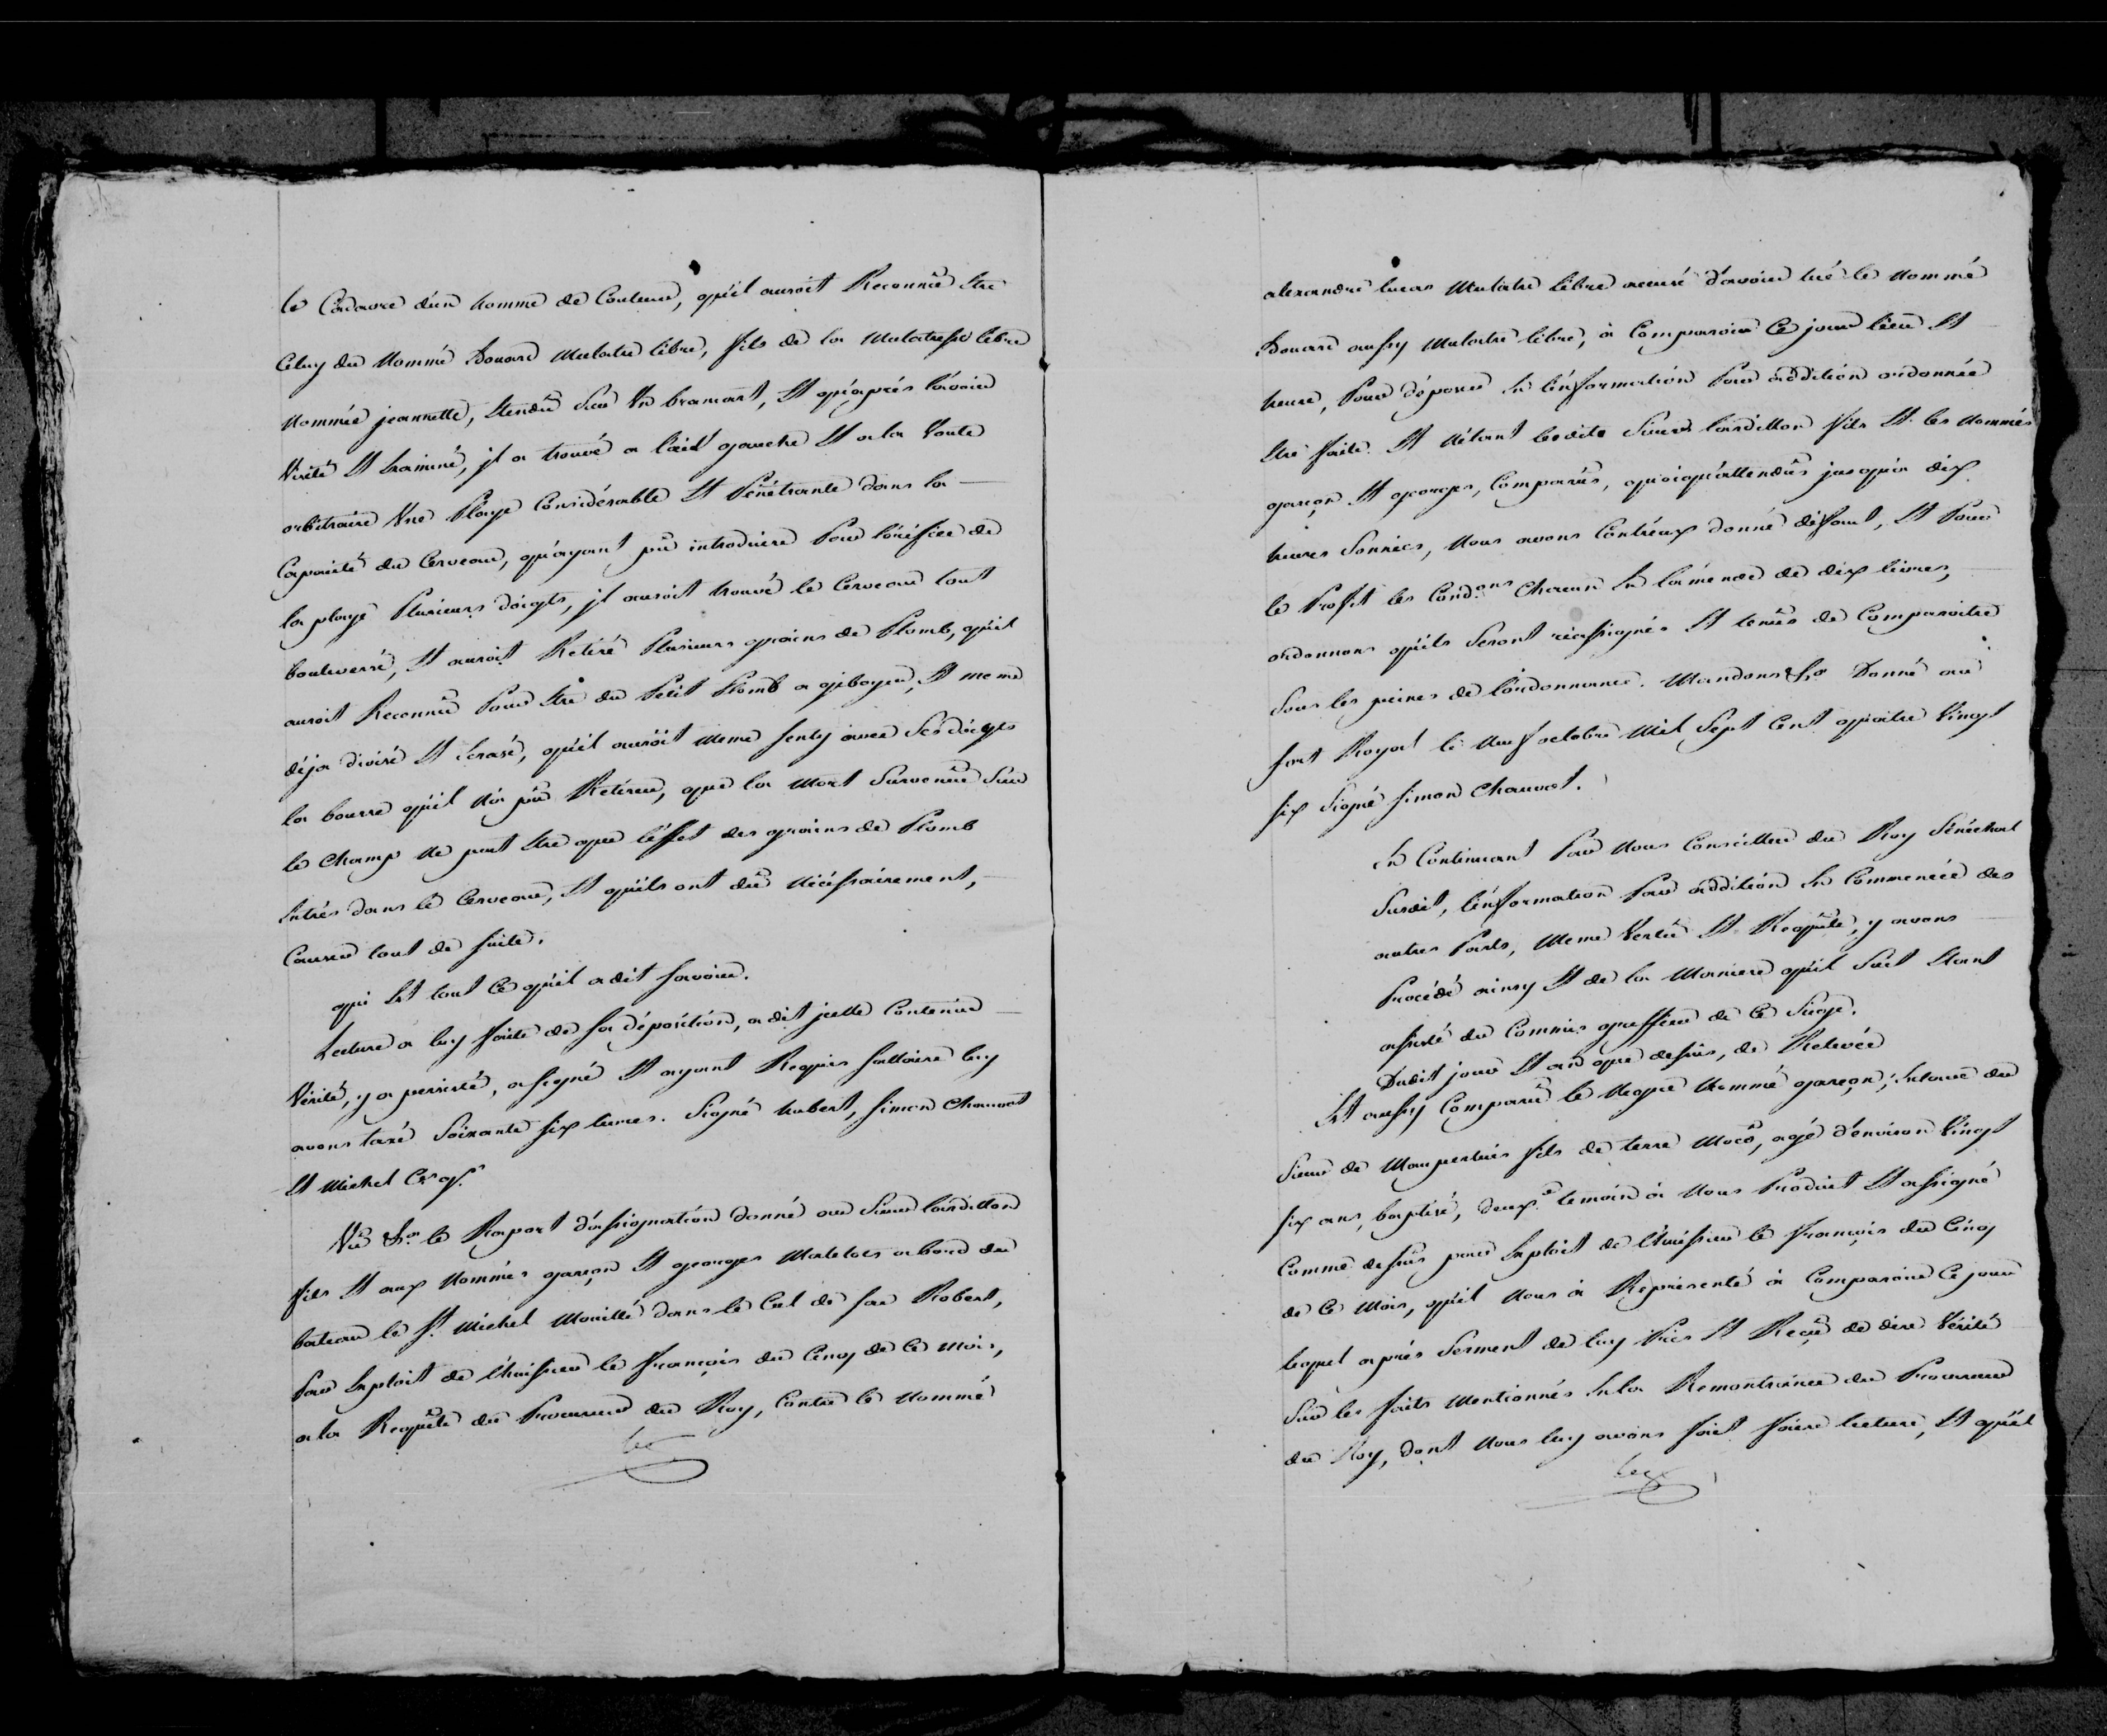 le Cadavre d'un homme de Couleur, qu'il auroit Reconnû Etre
Celuy du Nommé Douard Mulatre libre, fils de la Mulatresse libre
Nommée jeannette, Etendû Sur Un bramart, Et qu'aprés l'avoir
Visité Et Examiné, jl a trouvé a l'œil gauche Et a la Voute
orbitraire Une Playe Considérable Et Pénétrante dans la
Capacité du Cerveau, qu'ayant pû introduire Par l'orifice de
la playe Plusieurs doigts, jl auroit trouvé le Cerveau tout
bouleversé, Et auroit Retiré Plusieurs grains de Plomb, qu'il
auroit Reconnû Pour Etre du Petit Plomb a giboyer, Et meme
déja divisé Et Ecrasé, qu'il auroit meme senty avec Ses doigts
la bourre qu'il n'a pû Retirer, que la Mort Survenuë Sur
le Champ ne peut Etre que l'éffet des grains de Plomb
Entrés dans le Cerveau, Et qu'ils ont dû nécéssairement,
Causer tout de suite.
qui Est tout Ce qu'il a dit savoir.
Lecture a luy faite de sa déposition, a dit jcelle Contenir
Vérité, y a persisté, a signé Et ayant Requis sallaire luy
avons taxé Soixante six livres. Signé hubert, simon Chauvot
Et Michel Cis gr.
Vû Par le Raport d'assignation donné au Sieur
fils Et aux Nommés garçon Et georges Matelots abord du
bateau le St. Michel Mouillé dans le Cul de sac Robert,
Par Exploit de l'huissier le françois du Cinq de Ce Mois,
a la Requête du Procureur du Roy, Contre le Nommé
alexandre lucas Mulatre libre accusé d'avoir tué le Nommé
Douard aussy Mulatre libre, à Comparoir Ce jour lieu Et
heure, Pour déposer En l'information Par addition ordonnée
Etre faite. Et N'étant lesdits Sieur fils Et les Nommés
garçon Et georges, Comparûs, quoiqu'attendûs jusqu'a dix
heures Sonnées, Nous avons Contr'eux donné défaut, Et Pour
le Profit les Cond.ons Chacun En l'amende de dix livres,
ordonnons qu'ils Seront réassignés Et tenûs de Comparoitre
Sous les peines de l'ordonnance. Mandons &a Donné au
fort Royal le neuf octobre Mil Sept Cent quatre Vingt
six Signé simon Chauvot.
En Continuant Par Nous Conseiller du Roy Sénéchal
Susdit, l'information Par addition En Commencée des
autres Parts, Meme Vertû Et Requête, y avons
Procédé ainsy Et de la Maniere qu'il Suit Etant
assisté du Commis greffier de Ce Siege.
Dudit jour Et an que dessus, de Relevée
Est aussy Comparû le Negre Nommé garçon, Esclave du
Sieur de Maupertuis fils de terre Moco, agé d'environ Vingt
six ans, baptisé, deux.e temoin à Nous Produit Et assigné
Comme dessus par Exploit de l'huissier le françois du Cinq
de Ce Mois, qu'il Nous à Représenté à Comparoir Ce jour
lequel aprés Serment de luy Pris Et Reçû de dire Vérité
Sur les faits Mentionnés En la Remontrance du Procureur
du Roy, dont Nous luy avons fait faire lecture, Et qu'il